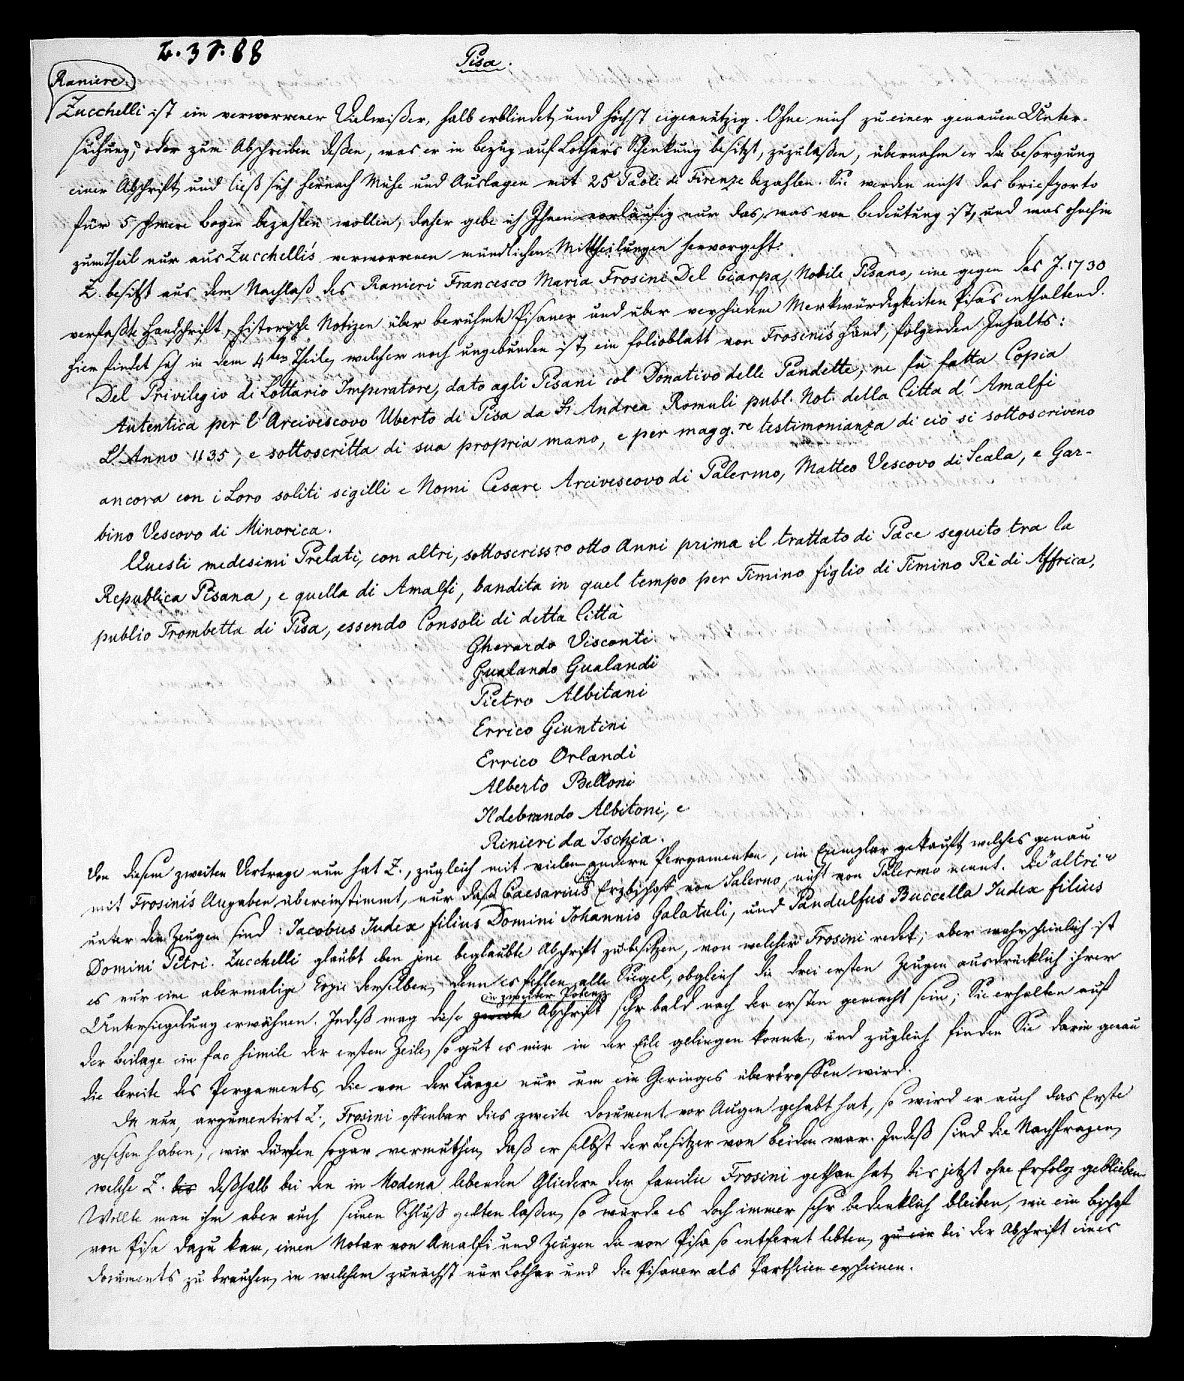 Z. 37. 88
Pisa.
Raniere
Zucchelli ist ein verworrener Vielwißer, halb erblindet, und höchst eigennützig. Ohne mich zu einer genauen Unter-
suchung, oder zum Abschreiben deßen, was er in bezug auf Lothars Schenkung besitzt, zuzulaßen, übernahm er die Besorgung
einer Abschrift, und ließ sich hernach Mühe und Auslagen mit 25 Paoli di Firenze bezahlen. Sie werden nicht das Briefporto
für 5 schwere Bogen bezahlen wollen, daher gebe ich Ihnen vorläufig nur das, was von Bedeutung ist, und was ohnehin
zum Theil nur aus Zucchelli's verworrenen mündlichen Mittheilungen hervorgeht.
Z. besitzt aus dem Nachlaß des Ranieri Francesco Maria Frosini Del Ciarpa, Nobile Pisano, eine gegen das J. 1730
verfaßte Handschrift, historische Notizen über berühmte Pisaner und über verschiedene Merkwürdigkeiten Pisa's enthaltend.
Hier findet sich in dem 4ten Theile, welcher noch ungebunden ist, ein Folioblatt von Frosini's Hand, folgenden Inhalts:
Del Privilegio di Lottario Imperatore, dato agli Pisani col Donativo delle Pandette, ne fù fatta Copia
Autentica per l'Arcivescovo Uberto di Pisa da Sr Andrea Romuli publ. Not. della Citta d'Amalfi
L'Anno 1135, e sottoscritta di sua propria mano, e per magg.re testimonianza di ciò si sottoscriveno
ancora con i Loro soliti sigilli e Nomi Cesare Arcivescovo di Palermo, Matteo Vescovo di Scala, e Gar-
bino Vescovo di Minorica.
Questi medesimi Prelati, con altri, sottoscrissro otto Anni prima il trattato di Pace seguito tra la
Republica Pisana, e quella di Amalfi, bandita in quel tempo per Timino figlio di Timino Rè di Affrica,
publio Trombetta di Pisa, essendo Consoli di detta Città
Gherardo Visconti
Gualando Gualandi
Pietro Albitani
Errico Giuntini
Errico Orlandi
Alberto Belloni
Ildebrando Albitoni, e
Rinieri da Ischia.
Von diesem zweiten Vertrage nun hat Z., zugleich mit vielen andern Pergamenten, ein Exemplar gekauft, welches genau
mit Frosini's Angaben übereinstimmt, nur daß Caesarius sich Erzbischof von Salerno, nicht von Palermo nennt. Die "altri"
unter den Zeugen sind: Jacobus Judex filius Domini Johannis Galatuli, und Pandulfus Buccella Judex filius
Domini Petri. Zucchelli glaubt eben jene beglaubte Abschrift zu besitzen, von welcher Frosini redet; aber wahrscheinlich ist
es nur eine abermalige Copie derselben, denn es fehlen alle Siegel, obgleich die drei ersten Zeugen ausdrücklich ihrer
Untersiegelung erwähnen. Indeß mag diese zweite in zweiter Potenz Abschrift sehr bald nach der ersten gemacht sein; Sie erhalten auf
der Beilage ein fac simile der ersten Zeile, so gut es mir in der Eile gelingen konnte, und zugleich finden Sie darin genau
die Breite des Pergaments, die von der Länge nur um ein Geringes übertroffen wird.
Da nun, argumentirt Z., Frosini offenbar dies zweite Document vor Augen gehabt hat, so wird er auch das Erste
gesehen haben; wir dürfen sogar vermuthen, daß er selbst der Besitzer von beiden war. Indeß sind die Nachfragen,
welche Z. bis deßhalb bei den in Modena lebenden Gliedern der Familie Frosini gethan hat, bis jetzt ohne Erfolg geblieben.
Wollte man ihm aber auch seinen Schluß gelten laßen, so würde es doch immer sehr bedenklich bleiben, wie ein Bischof
von Pisa dazu kam, einen Notar von Amalfi und Zeugen die von Pisa so entfernt lebten, zu ein bei der Abschrift eines
Documents zu brauchen, in welchem zunächst nur Lothar und die Pisaner als Partheien erscheinen.